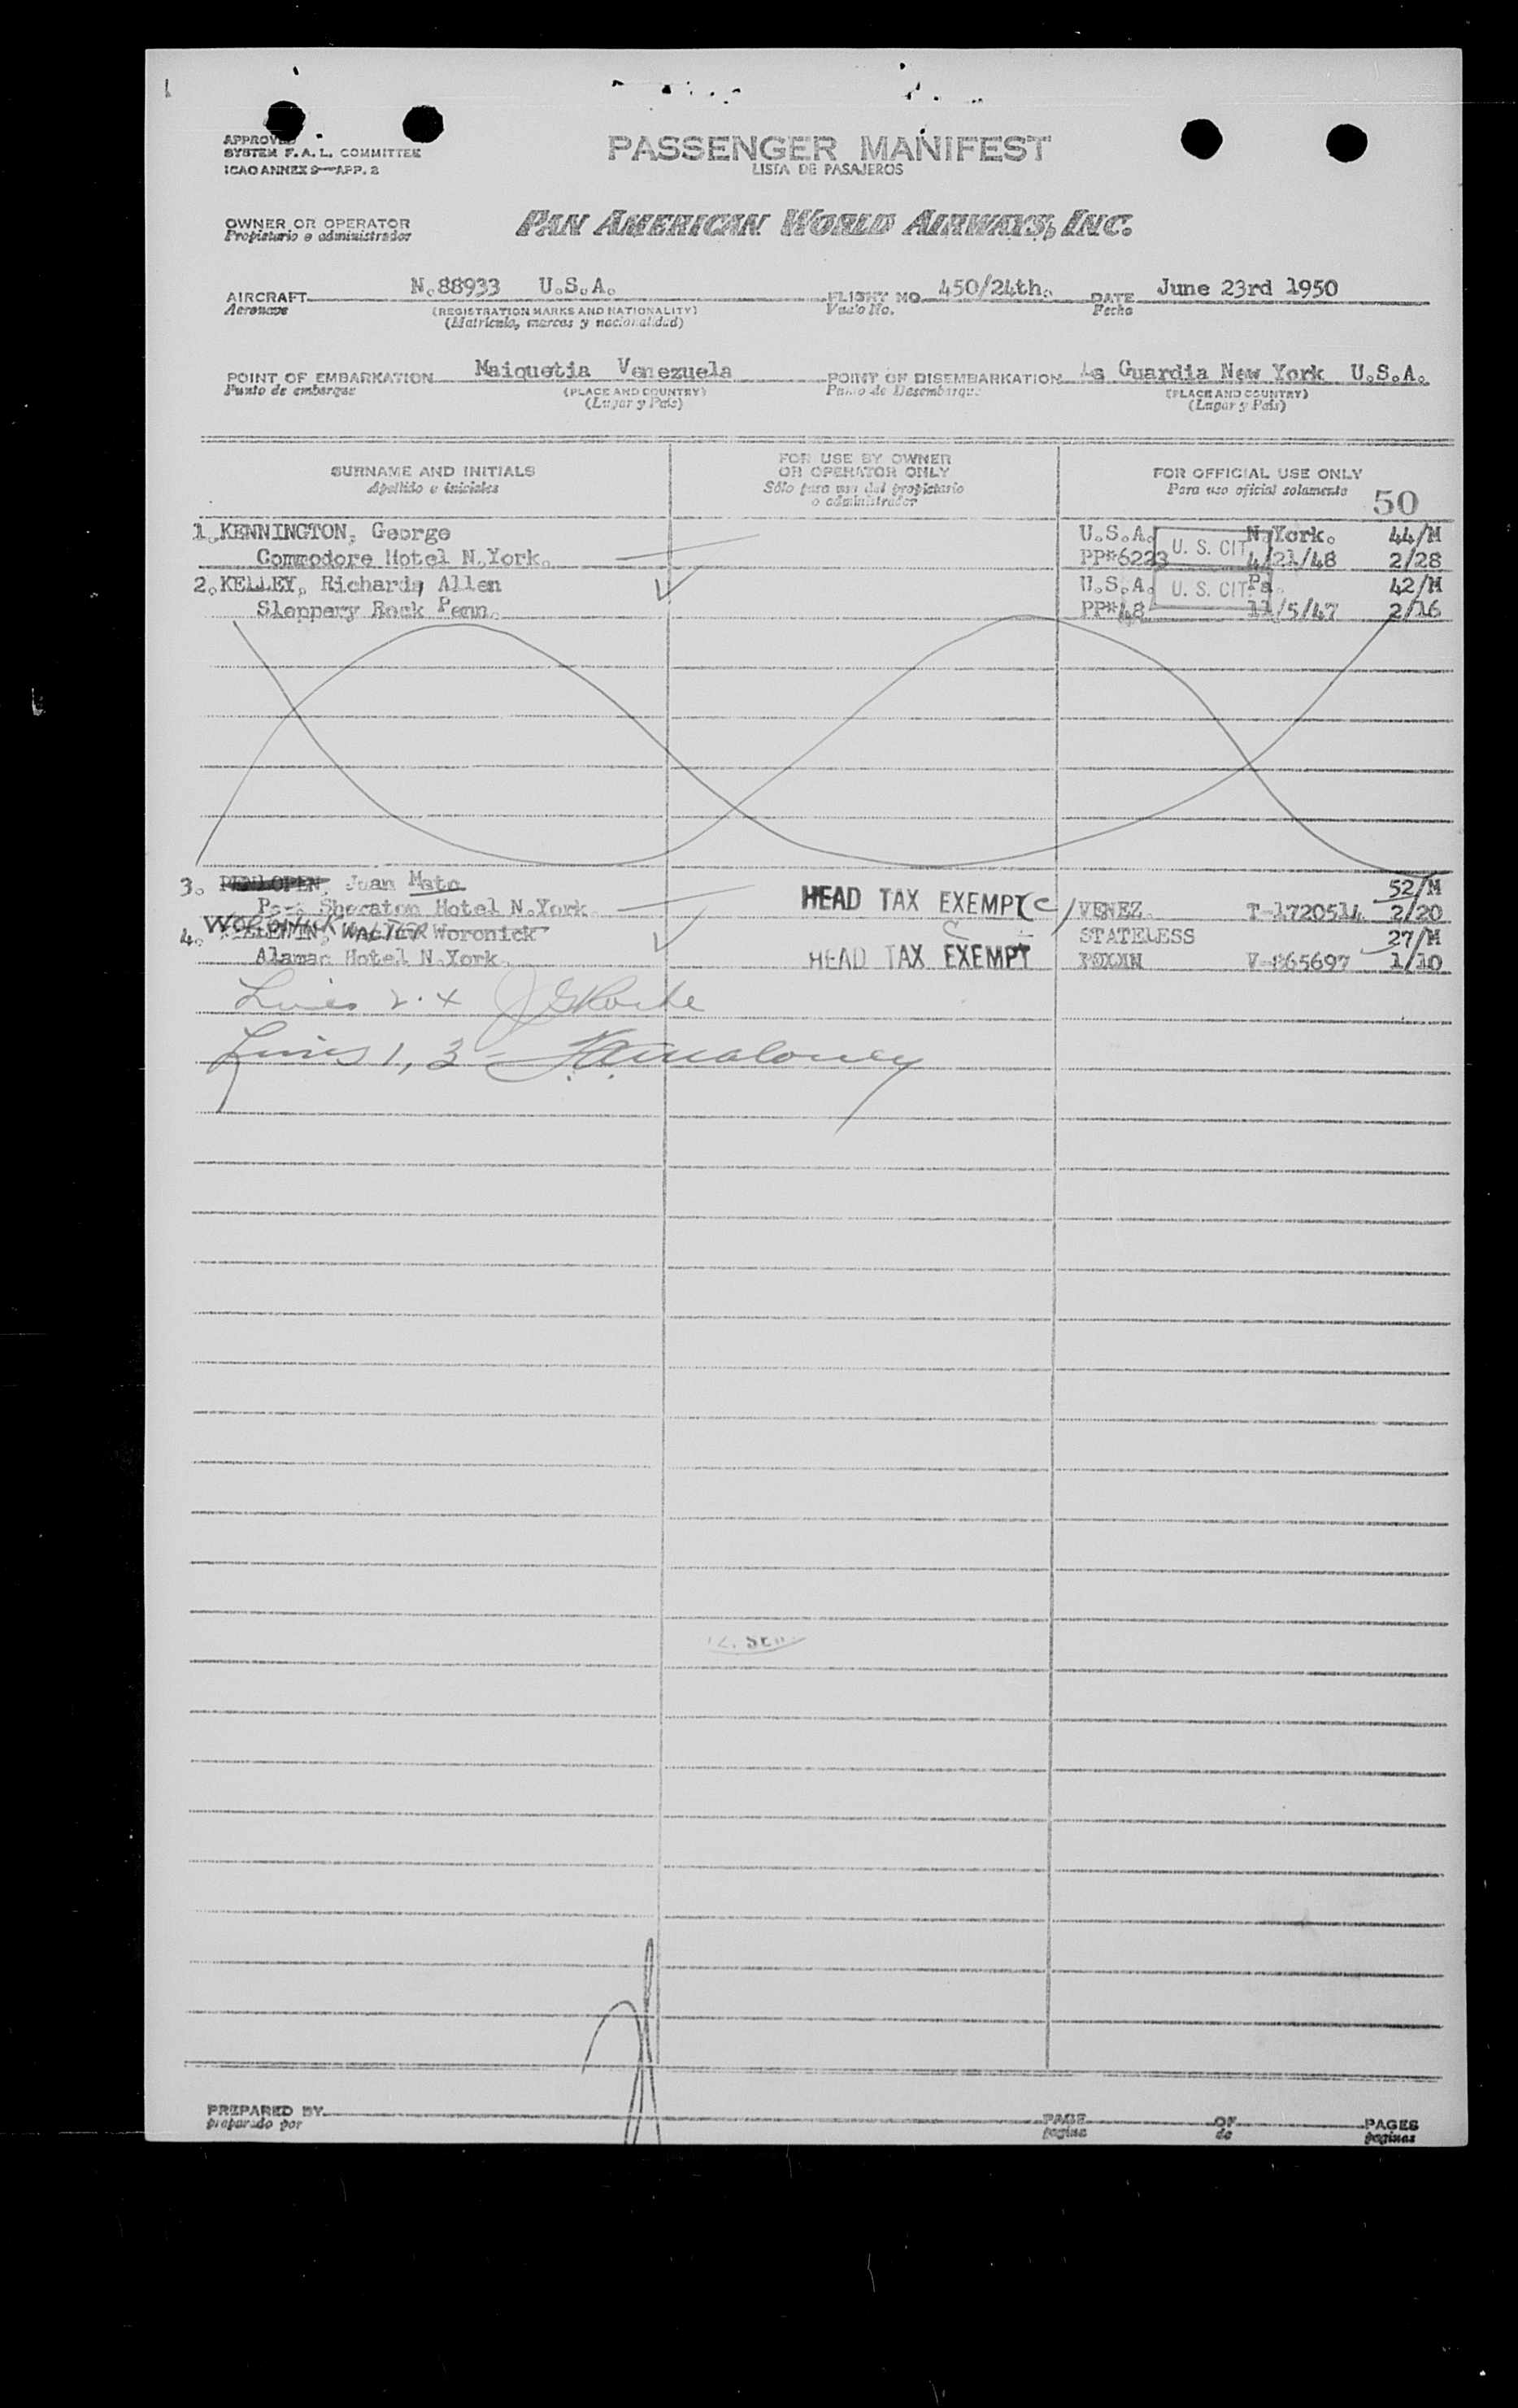 APPROVED
SYSTEM F.A.L. COMMITTEE
ICAO ANNEX 9—APP. 2
PASSENGER MANIFEST
LISTA DE PASAJEROS
OWNER OR OPERATOR
Propietario o administrador
PAN AMERICAN WORLD AIRWAYS, INC.
AIRCRAFT N.88933 U.S.A. FLIGHT NO. 450/24th. DATE June 23rd 1950
Aeronave (REGISTRATION MARKS AND NATIONALITY) Vuelo No. Fecha
(Matricula, marcas y nacionalidad)
POINT OF EMBARKATION Maiquetia Venezuela POINT OF DISEMBARKATION La Guardia New York U.S.A.
Punto de embarque (PLACE AND COUNTRY) Punto de Desembarque (PLACE AND COUNTRY)
(Lugar y País) (Lugar y País)
SURNAME AND INITIALS
Apellido e iniciales
FOR USE BY OWNER
OR OPERATOR ONLY
Sólo para uso del propietario
o administrador
FOR OFFICIAL USE ONLY
Para uso oficial solamente 50
1. KENNINGTON, George U.S.A. N.York. 44/M
Commodore Hotel N.York. PP#6223 U. S. CIT 4/21/48 2/28
2. KELLEY, Richards Allen U.S.A. U. S. CIT Pa. 42/M
Sleppery Rock Penn. PP#48 11/5/47 2/16
3. Juan Mato 52/M
Sheraton Hotel N.York HEAD TAX EXEMPT VENEZ. T-1720514 2/20
WORONICK
4. WALTER Woronick STATELESS 27/M
Alamac Hotel N.York. HEAD TAX EXEMPT V-865697 1/10
Lines
Lines 1, 3 - Maloney
PREPARED BY PAGE OF PAGES
preparado por pagina de paginas